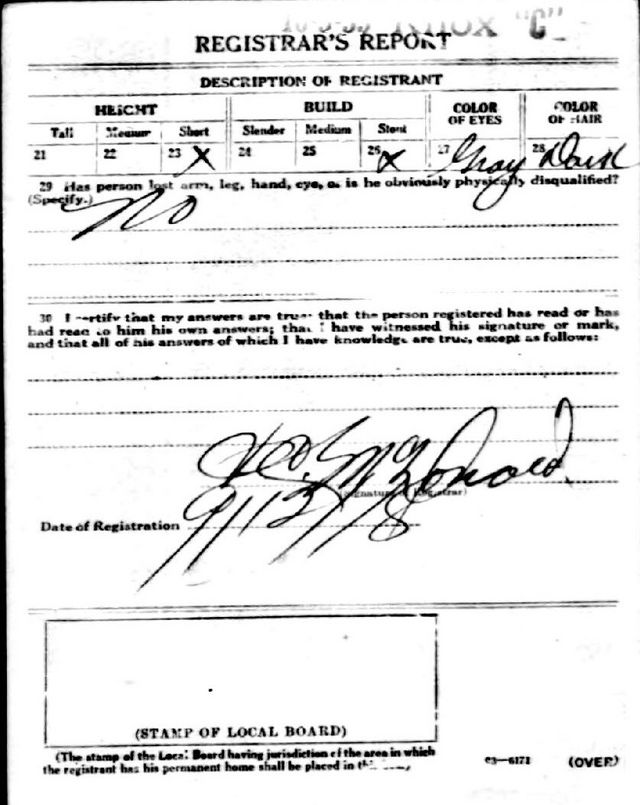 KNOX "C"
REGISTRAR'S REPORT
DESCRIPTION OF REGISTRANT
HEIGHT BUILD COLOR OF EYES COLOR OF HAIR
Tall Medium Short Slender Medium Stout
21 22 23 X 24 25 26 X 27 Gray 28 Dark
29 Has person lost arm, leg, hand, eye, or is he obviously physically disqualified?
(Specify.) No
30 I certify that my answers are true; that the person registered has read or has
had read to him his own answers; that I have witnessed his signature or mark,
and that all of his answers of which I have knowledge are true, except as follows:
McDonald
(Signature of Registrar)
Date of Registration 9/12/18
(STAMP OF LOCAL BOARD)
(The stamp of the Local Board having jurisdiction of the area in which
the registrant has his permanent home shall be placed in
03—6171 (OVER)